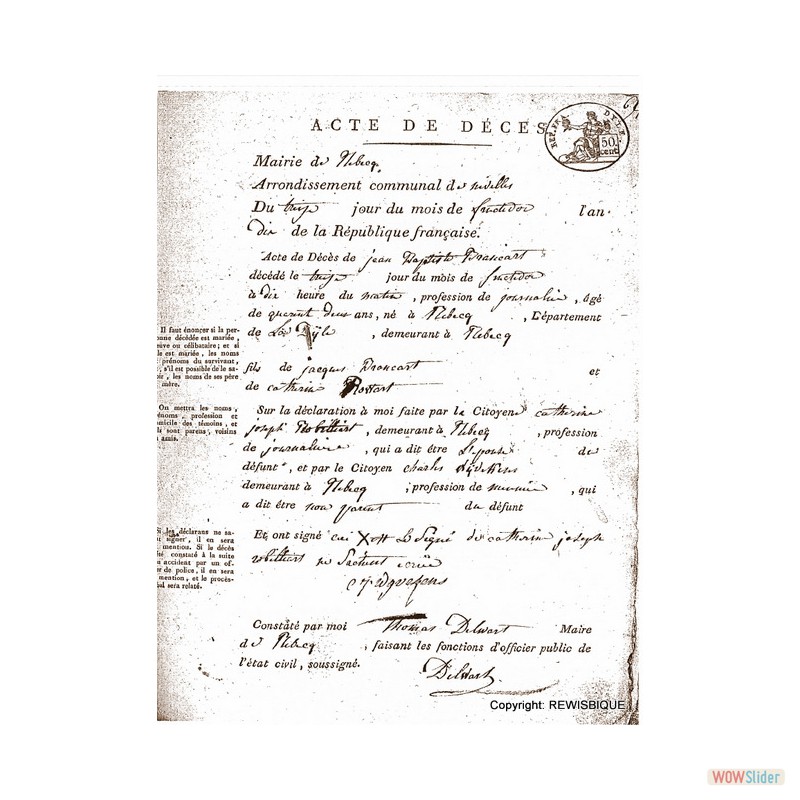 ACTE DE DÉCES
REP. FR. DYLE.
50 cent
Mairie de Rebecq
Arrondissement communal de nivelles
Du treize jour du mois de fructidor l'an
dix de la République française.
Acte de Décès de jean Baptiste Brancart
décédé le treize jour du mois de fructidor
à dix heure du matin, profession de journalier, âgé
de quarent deux ans, né à Rebecq, Département
de La Dÿle, demeurant à Rebecq
fils de jacques Brancart et
de catherine Rossart
Sur la déclaration à moi faite par le Citoyenne catherine
joseph Robilliart, demeurant à Rebecq, profession
de journaliere, qui a dit être L'épouse du
défunt, et par le Citoyen charles
demeurant à Rebecq, profession de, qui
a dit être non parent du défunt
Et ont signé Le Signé de catherine joseph
ne Sachant
Constaté par moi Thomas Delwart Maire
de Rebecq, faisant les fonctions d'officier public de
l'état civil, soussigné.
Delwart
Il faut énoncer si la per-
onne décédée est mariée,
euve ou célibataire; et si
le est mariée, les noms
prénoms du survivant,
s'il est possible de le sa-
oir, les noms de ses père
mère.
On mettra les noms,
énoms, profession et
micile des témoins, et
ils sont parens, voisins
amis.
Si les déclarans ne sa-
nt signer, il en sera
mention. Si le décès
été constaté à la suite
accident par un of-
er de police, il en sera
mention, et le procès-
al sera relaté.
Copyright: REWISBIQUE
WOWSlider